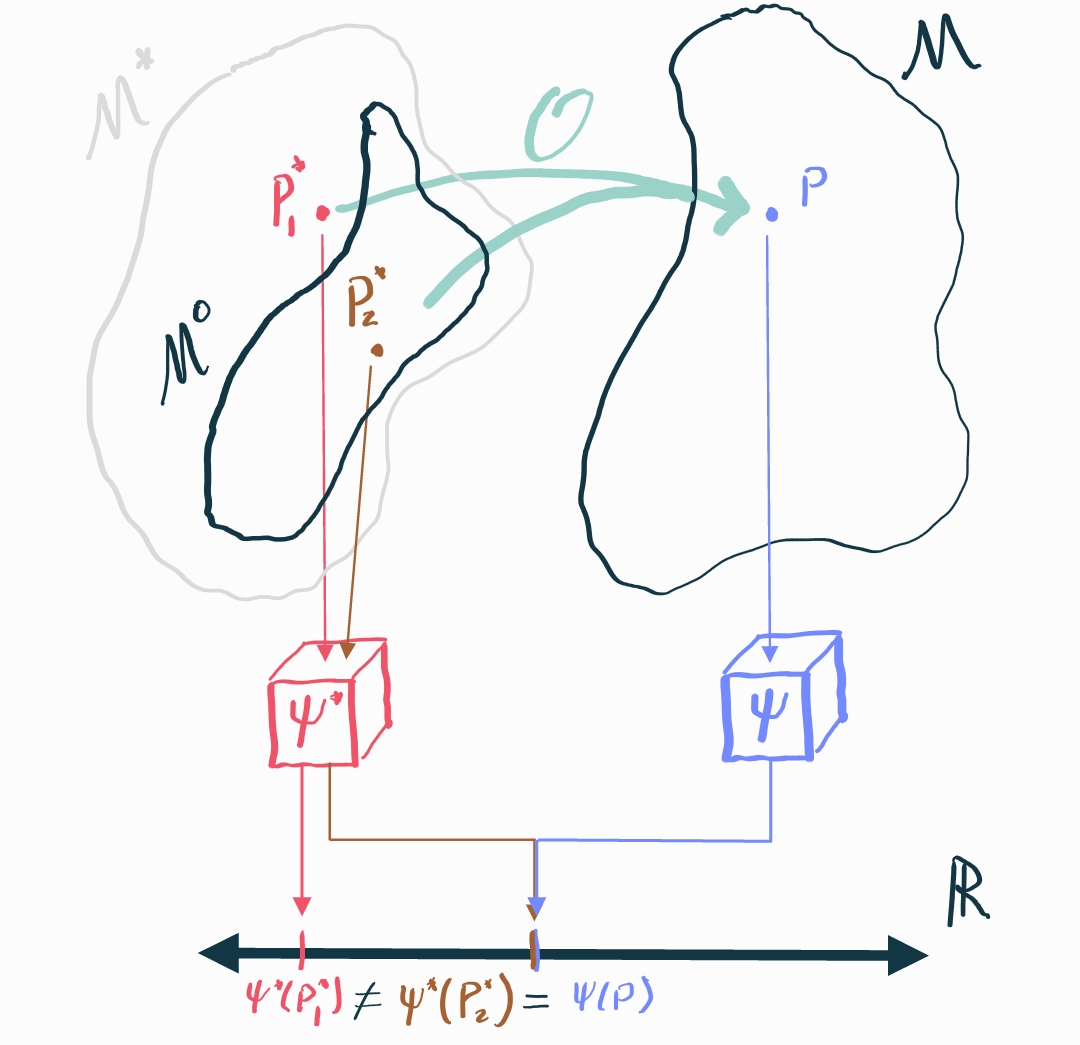 M*
M
O
P₁*
P
P₂*
M⁰
Ψ*
Ψ
ℝ
Ψ*(P₁*) ≠ Ψ*(P₂*) = Ψ(P)